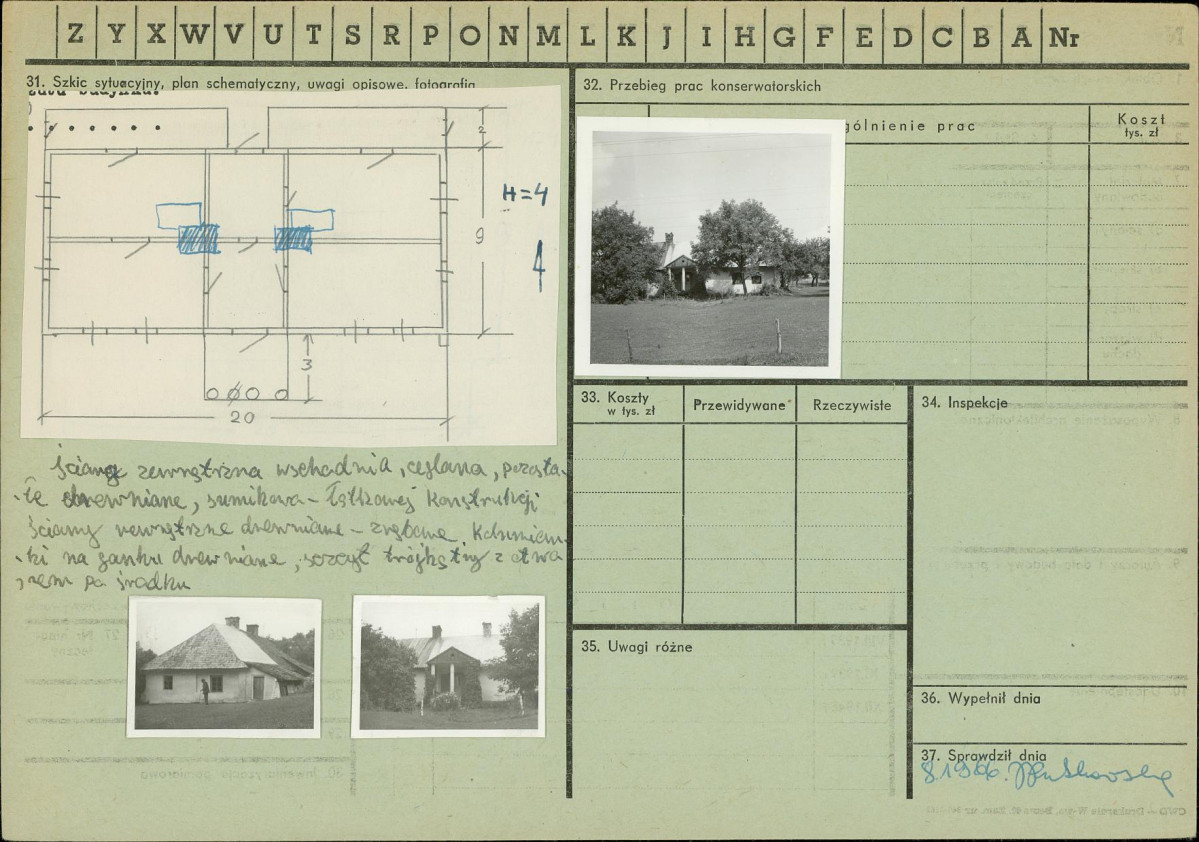 Z Y X W V U T S R P O N M L K J I H G F E D C B A Nr
31. Szkic sytuacyjny, plan schematyczny, uwagi opisowe, fotografia
2
9
H=4
3
20
Ściana zewnętrzna wschodnia, ceglana, pozosta-
-łe drewniane, sumikowo-łątkowej konstrukcji
ściany wewnętrzne drewniane - zrębowe. Kolumien-
-ki na ganku drewniane, szczyt trójkątny z otwo-
rem po środku
32. Przebieg prac konserwatorskich
gólnienie prac
Koszt
tys. zł
33. Koszty
w tys. zł
Przewidywane
Rzeczywiste
34. Inspekcje
35. Uwagi różne
36. Wypełnił dnia
37. Sprawdził dnia